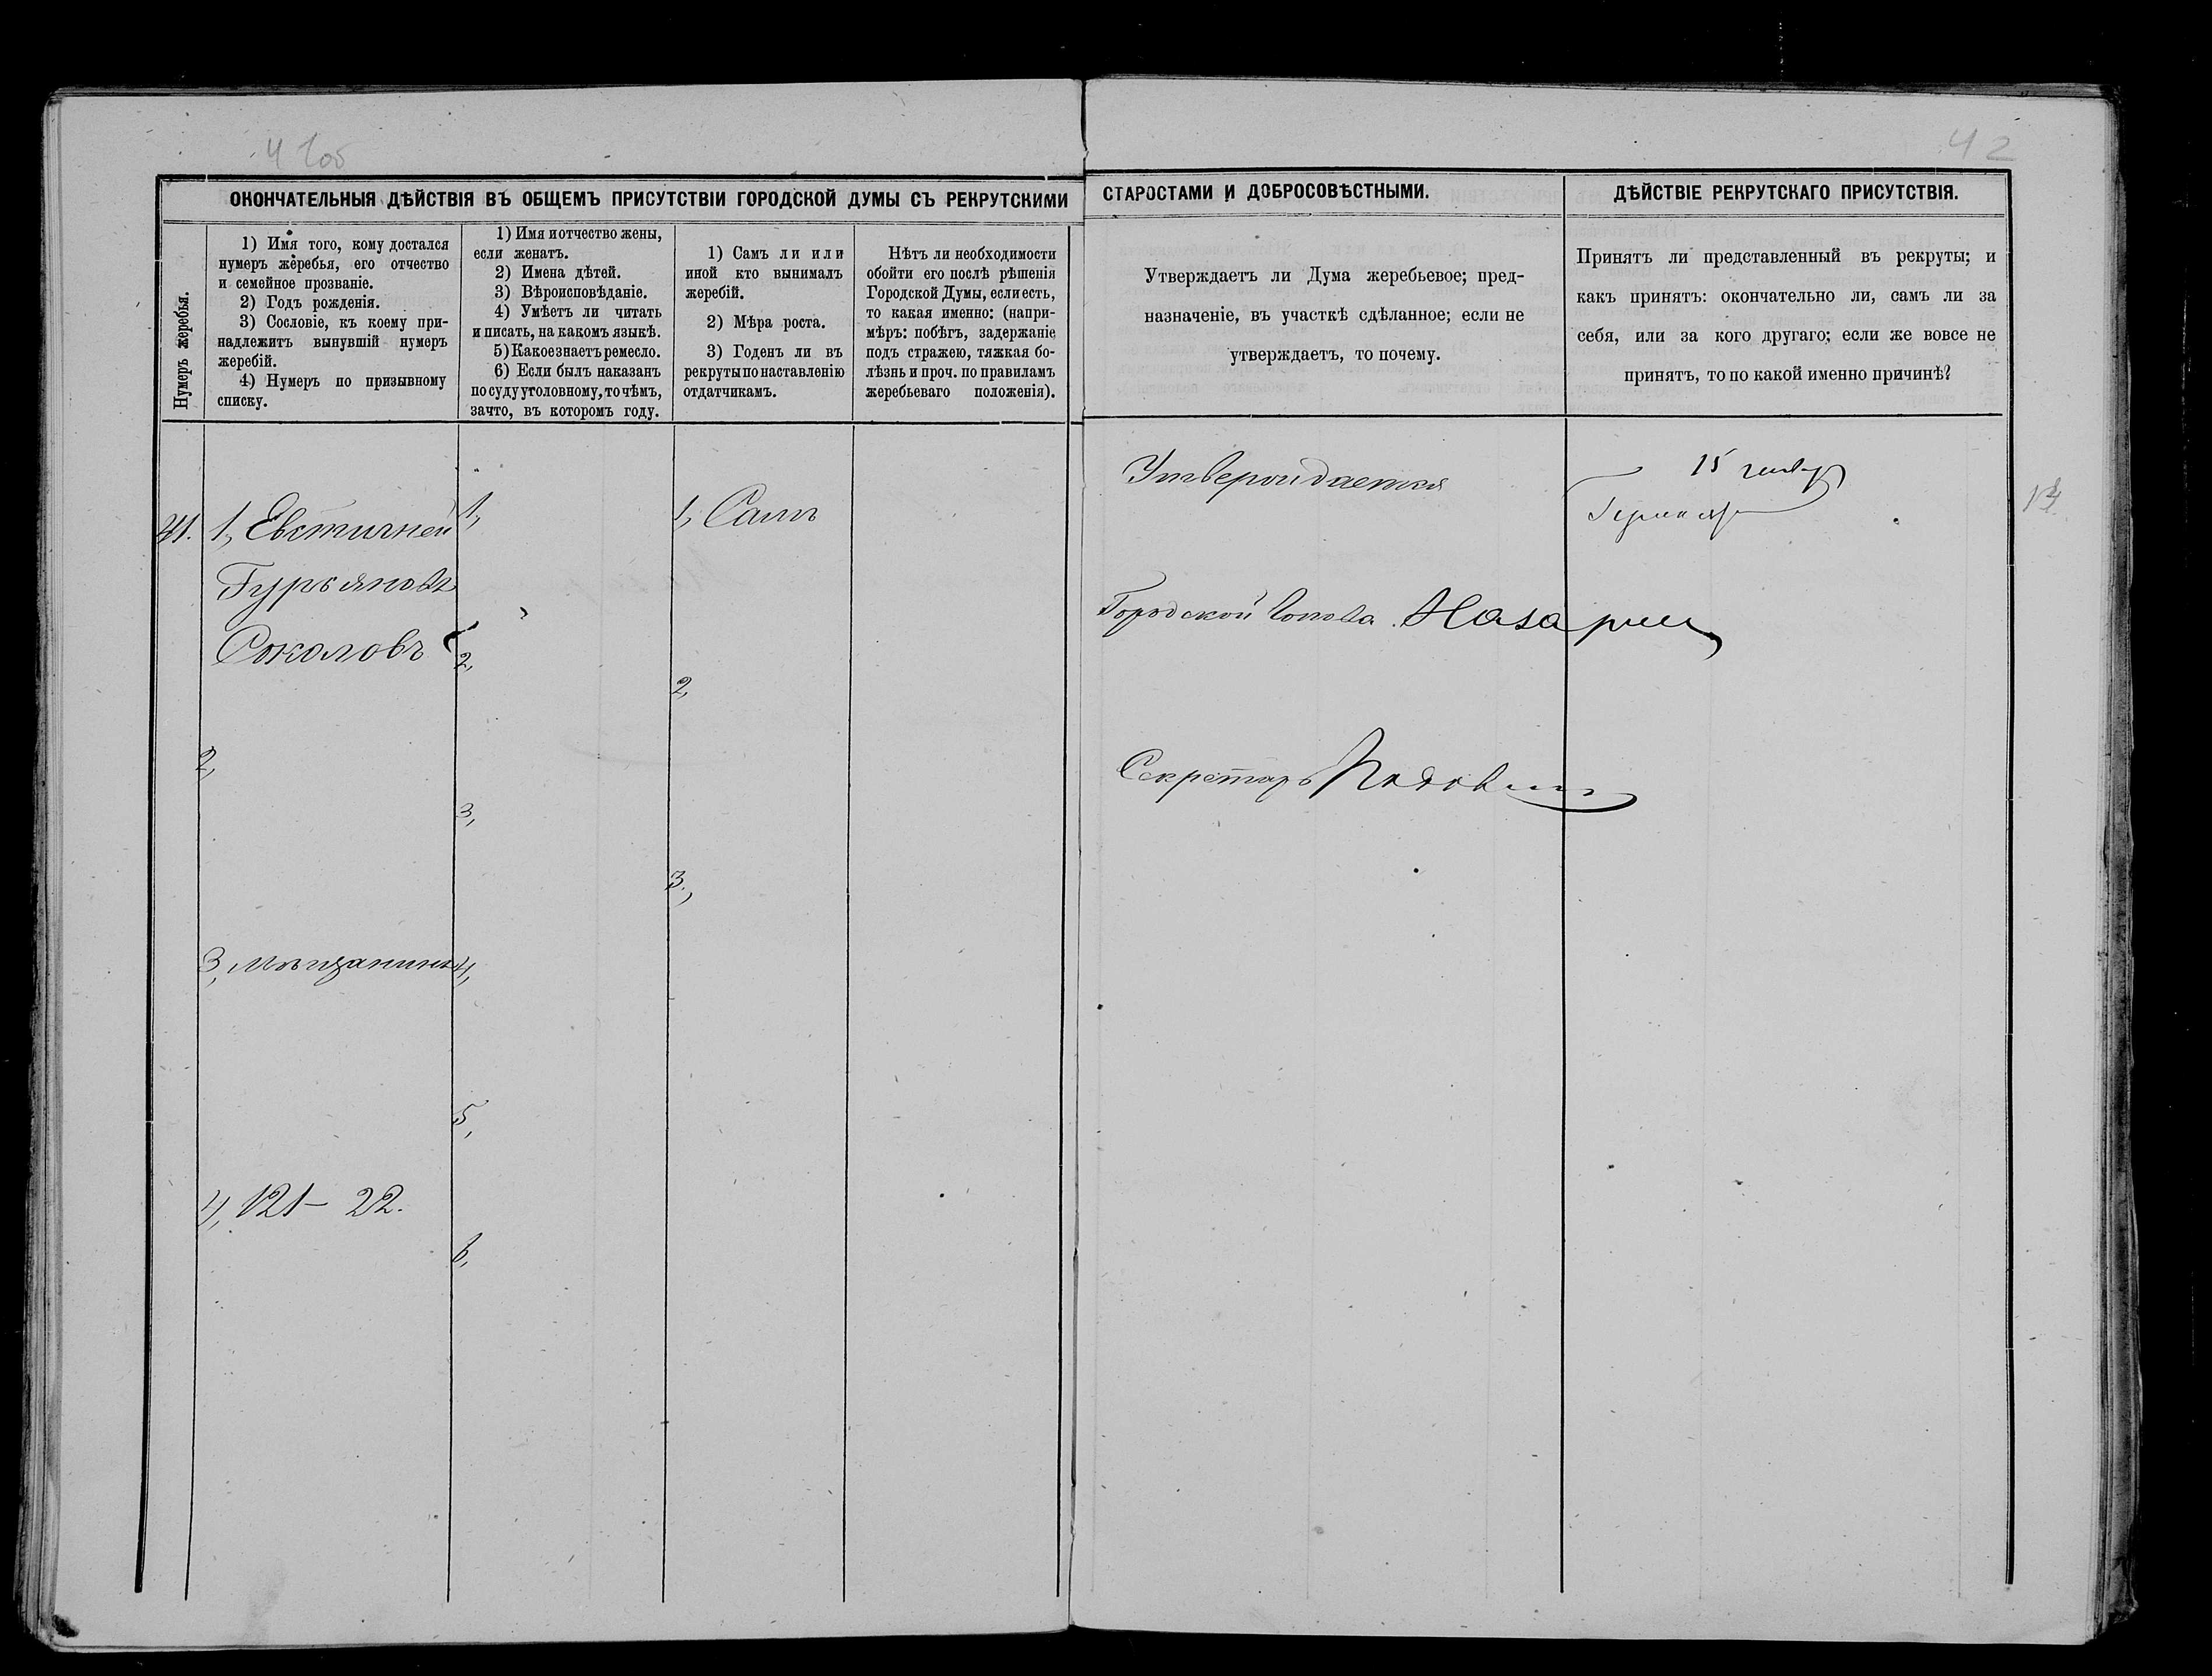 41об
42
ОКОНЧАТЕЛЬНЫЯ ДѢЙСТВІЯ ВЪ ОБЩЕМЪ ПРИСУТСТВІИ ГОРОДСКОЙ ДУМЫ СЪ РЕКРУТСКИМИ СТАРОСТАМИ И ДОБРОСОВѢСТНЫМИ.
ДѢЙСТВІЕ РЕКРУТСКАГО ПРИСУТСТВІЯ.
Нумеръ жеребья.
1) Имя того, кому достался
нумеръ жеребья, его отчество
и семейное прозваніе.
2) Годъ рожденія.
3) Сословіе, къ коему при-
надлежитъ вынувшій нумеръ
жеребій.
4) Нумеръ по призывному
списку.
1) Имя и отчество жены,
если женатъ.
2) Имена дѣтей.
3) Вѣроисповѣданіе.
4) Умѣетъ ли читать
и писать, на какомъ языкѣ.
5) Какое знаетъ ремесло.
6) Если былъ наказанъ
по суду уголовному, то чѣмъ,
за что, въ которомъ году.
1) Самъ ли или
иной кто вынималъ
жеребій.
2) Мѣра роста.
3) Годенъ ли въ
рекруты по наставленію
отдатчикамъ.
Нѣтъ ли необходимости
обойти его послѣ рѣшенія
Городской Думы, если есть,
то какая именно: (напри-
мѣръ: побѣгъ, задержаніе
подъ стражею, тяжкая бо-
лѣзнь и проч. по правиламъ
жеребьеваго положенія).
Утверждаетъ ли Дума жеребьевое; пред-
назначеніе, въ участкѣ сдѣланное; если не
утверждаетъ, то почему.
Принятъ ли представленный въ рекруты; и
какъ принятъ: окончательно ли, самъ ли за
себя, или за кого другаго; если же вовсе не
принятъ, то по какой именно причинѣ?
41. 1, Евстигней
Гурьяновъ
Соколовъ
2,
3, мѣщанинъ
4, 121 – 22.
1,
2,
3,
4,
5,
6,
1, Самъ
2,
3,
Утверждается
Городской Голова
Секретарь
15